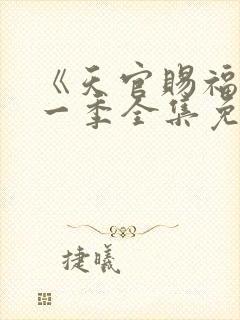 《天官赐福
一季全集免
捷曦